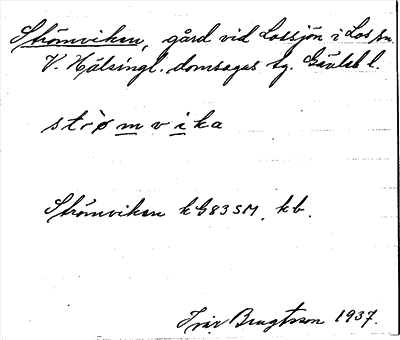 Strömviken, gård vid Lossjön i Los sn.
V. Hälsingl. domsagas tg. Gävleb l.
strø̀mvika
Strömviken kG83SM. kb.
Ivar Bengtsson 1937.